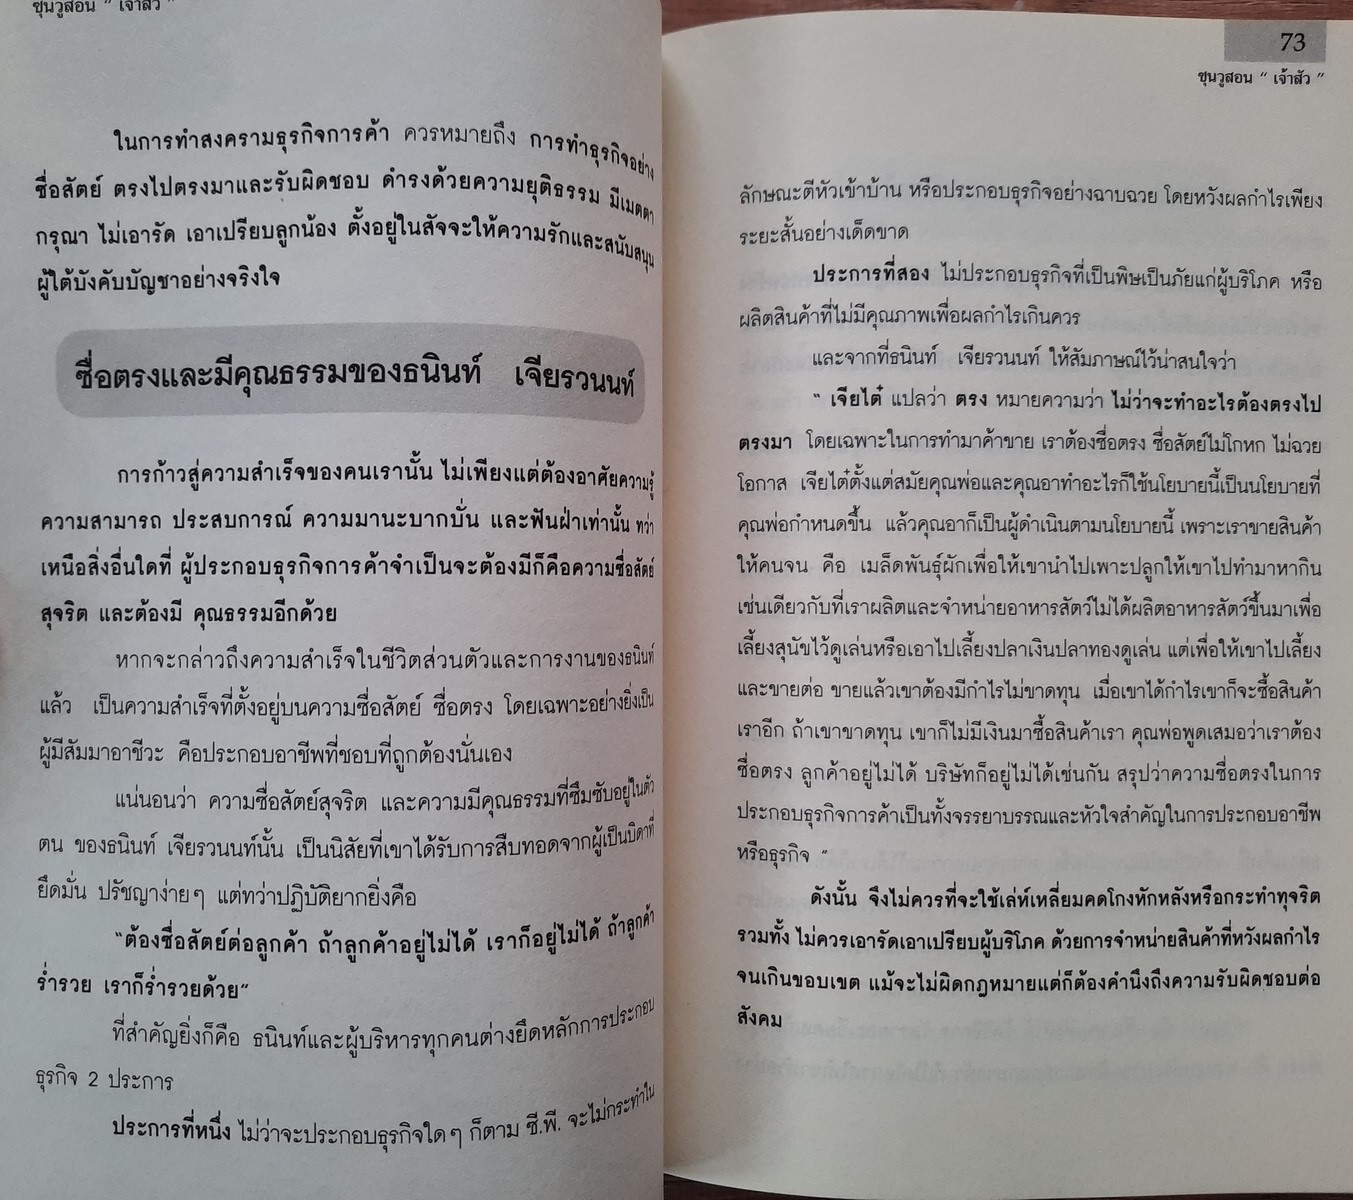 ซุนวูสอน “ เจ้าสัว ”
ในการทำสงครามธุรกิจการค้า ควรหมายถึง การทำธุรกิจอย่าง
ซื่อสัตย์ ตรงไปตรงมาและรับผิดชอบ ดำรงด้วยความยุติธรรม มีเมตตา
กรุณา ไม่เอารัด เอาเปรียบลูกน้อง ตั้งอยู่ในสัจจะให้ความรักและสนับสนุน
ผู้ใต้บังคับบัญชาอย่างจริงใจ
ซื่อตรงและมีคุณธรรมของธนินท์ เจียรวนนท์
การก้าวสู่ความสำเร็จของคนเรานั้น ไม่เพียงแต่ต้องอาศัยความรู้
ความสามารถ ประสบการณ์ ความมานะบากบั่น และฟันฝ่าเท่านั้น ทว่า
เหนือสิ่งอื่นใดที่ ผู้ประกอบธุรกิจการค้าจำเป็นจะต้องมีก็คือความซื่อสัตย์
สุจริต และต้องมี คุณธรรมอีกด้วย
หากจะกล่าวถึงความสำเร็จในชีวิตส่วนตัวและการงานของธนินท์
แล้ว เป็นความสำเร็จที่ตั้งอยู่บนความซื่อสัตย์ ซื่อตรง โดยเฉพาะอย่างยิ่งเป็น
ผู้มีสัมมาอาชีวะ คือประกอบอาชีพที่ชอบที่ถูกต้องนั่นเอง
แน่นอนว่า ความซื่อสัตย์สุจริต และความมีคุณธรรมที่ซึมซับอยู่ในตัว
ตน ของธนินท์ เจียรวนนท์นั้น เป็นนิสัยที่เขาได้รับการสืบทอดจากผู้เป็นบิดาที่
ยึดมั่น ปรัชญาง่ายๆ แต่ทว่าปฏิบัติยากยิ่งคือ
“ต้องซื่อสัตย์ต่อลูกค้า ถ้าลูกค้าอยู่ไม่ได้ เราก็อยู่ไม่ได้ ถ้าลูกค้า
ร่ำรวย เราก็ร่ำรวยด้วย”
ที่สำคัญยิ่งก็คือ ธนินท์และผู้บริหารทุกคนต่างยึดหลักการประกอบ
ธุรกิจ 2 ประการ
ประการที่หนึ่ง ไม่ว่าจะประกอบธุรกิจใดๆ ก็ตาม ซี.พี. จะไม่กระทำใน
73
ซุนวูสอน “ เจ้าสัว ”
ลักษณะตีหัวเข้าบ้าน หรือประกอบธุรกิจอย่างฉาบฉวย โดยหวังผลกำไรเพียง
ระยะสั้นอย่างเด็ดขาด
ประการที่สอง ไม่ประกอบธุรกิจที่เป็นพิษเป็นภัยแก่ผู้บริโภค หรือ
ผลิตสินค้าที่ไม่มีคุณภาพเพื่อผลกำไรเกินควร
และจากที่ธนินท์ เจียรวนนท์ ให้สัมภาษณ์ไว้น่าสนใจว่า
“ เจียไต๋ แปลว่า ตรง หมายความว่า ไม่ว่าจะทำอะไรต้องตรงไป
ตรงมา โดยเฉพาะในการทำมาค้าขาย เราต้องซื่อตรง ซื่อสัตย์ไม่โกหก ไม่ฉวย
โอกาส เจียไต๋ตั้งแต่สมัยคุณพ่อและคุณอาทำอะไรก็ใช้นโยบายนี้เป็นนโยบายที่
คุณพ่อกำหนดขึ้น แล้วคุณอาก็เป็นผู้ดำเนินตามนโยบายนี้ เพราะเราขายสินค้า
ให้คนจน คือ เมล็ดพันธุ์ผักเพื่อให้เขานำไปเพาะปลูกให้เขาไปทำมาหากิน
เช่นเดียวกับที่เราผลิตและจำหน่ายอาหารสัตว์ไม่ได้ผลิตอาหารสัตว์ขึ้นมาเพื่อ
เลี้ยงสุนัขไว้ดูเล่นหรือเอาไปเลี้ยงปลาเงินปลาทองดูเล่น แต่เพื่อให้เขาไปเลี้ยง
และขายต่อ ขายแล้วเขาต้องมีกำไรไม่ขาดทุน เมื่อเขาได้กำไรเขาก็จะซื้อสินค้า
เราอีก ถ้าเขาขาดทุน เขาก็ไม่มีเงินมาซื้อสินค้าเรา คุณพ่อพูดเสมอว่าเราต้อง
ซื่อตรง ลูกค้าอยู่ไม่ได้ บริษัทก็อยู่ไม่ได้เช่นกัน สรุปว่าความซื่อตรงในการ
ประกอบธุรกิจการค้าเป็นทั้งจรรยาบรรณและหัวใจสำคัญในการประกอบอาชีพ
หรือธุรกิจ ”
ดังนั้น จึงไม่ควรที่จะใช้เล่ห์เหลี่ยมคดโกงหักหลังหรือกระทำทุจริต
รวมทั้ง ไม่ควรเอารัดเอาเปรียบผู้บริโภค ด้วยการจำหน่ายสินค้าที่หวังผลกำไร
จนเกินขอบเขต แม้จะไม่ผิดกฎหมายแต่ก็ต้องคำนึงถึงความรับผิดชอบต่อ
สังคม